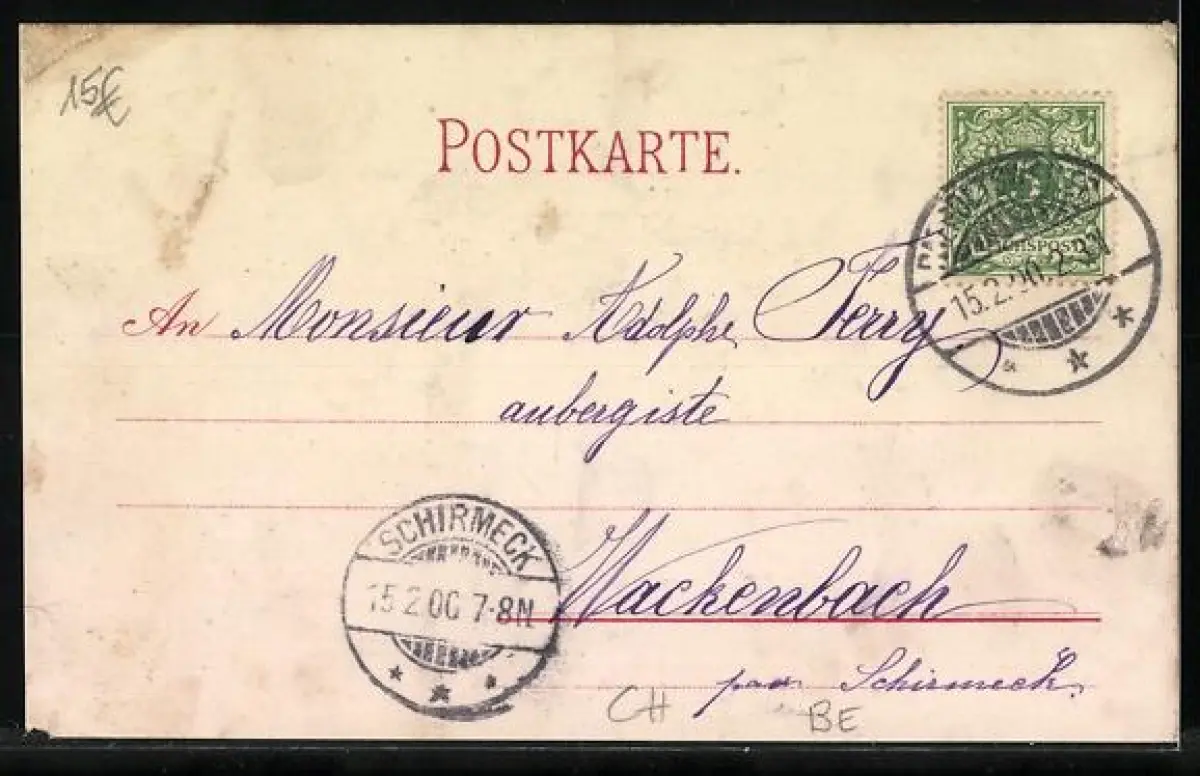 15€
POSTKARTE.
REICHSPOST
15.2.00. 2-3N
An Monsieur Adolphe Ferry
aubergiste
SCHIRMECK
15.2.00 7-8N
Wackenbach
par Schirmeck.
CH
BE